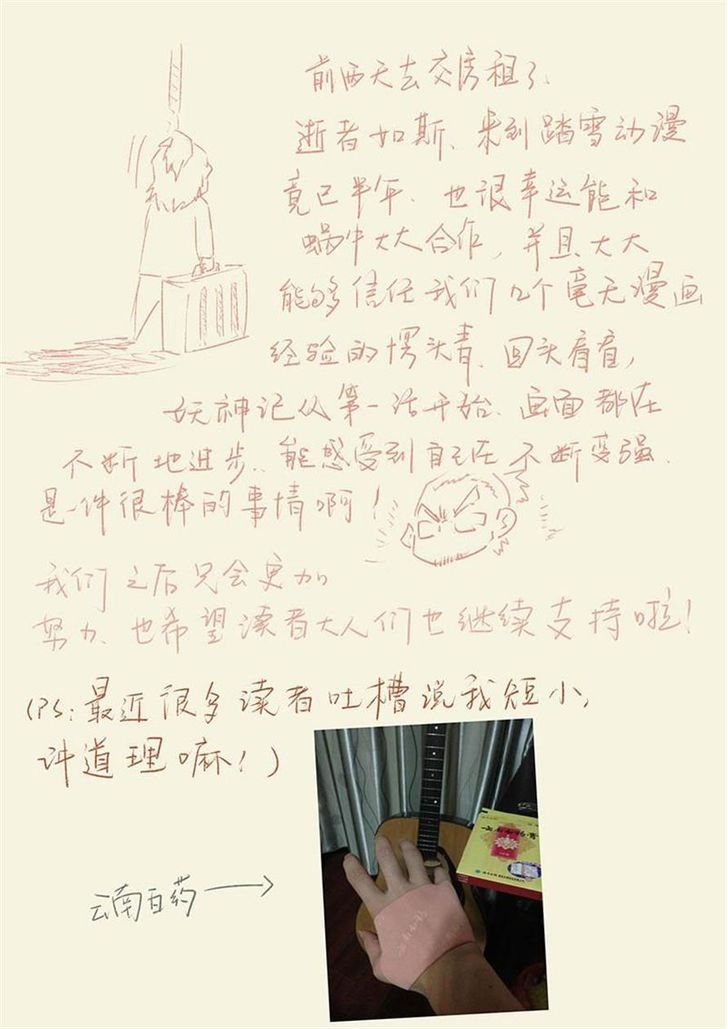 前两天去交房租了、
逝者如斯、来到踏雪动漫
竟已半年、也很幸运能和
蜗牛大大合作，并且大大
能够信任我们几个毫无漫画
经验的愣头青、回头看看，
妖神记从第一话开始、画面都在
不断地进步、能感受到自己在不断变强、
是一件很棒的事情啊！
我们之后只会更加
努力、也希望读者大人们也继续支持啦！
(PS:最近很多读者吐槽说我短小，
讲道理嘛！)
云南白药
云南白药膏